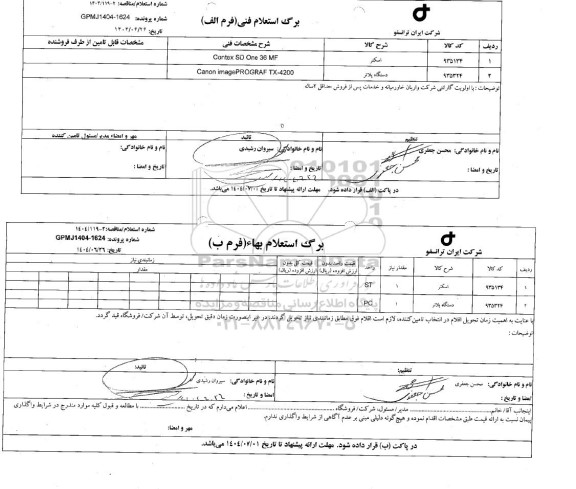 شماره استعلام/مناقصه: ۱۴۰۴/۱۱۹۰۲
برگ استعلام فنی(فرم الف)
شماره پرونده: GPMJ1404-1624
شرکت ایران ترانسفو
ردیف کد کالا شرح کالا شرح مشخصات فنی مشخصات قابل تامین از طرف فروشنده
۱ ۹۳۵۱۳۴ اسکنر Contex SD One 36 MF
۲ ۹۳۵۳۲۴ دستگاه پلاتر Canon imagePROGRAF TX-4200
توضیحات : با اولویت گارانتی شرکت واریان خاورمیانه و خدمات پس از فروش حداقل ۲ساله
تنظیم تائید مهر و امضاء مدیر/مسئول تامین کننده
نام و نام خانوادگی: محسن جعفری نام و نام خانوادگی: سیروان رشیدی نام و نام خانوادگی:
تاریخ و امضا : تاریخ و امضا : تاریخ و امضا :
در پاکت (الف) قرار داده شود. مهلت ارائه پیشنهاد تا تاریخ ۱۴۰۴/۰۷/۰۱ می‌باشد.
شماره استعلام/مناقصه: ۱۴۰۴/۱۱۹۰۲
برگ استعلام بهاء(فرم ب)
شماره پرونده: GPMJ1404-1624
شرکت ایران ترانسفو
تاریخ: ۱۴۰۴/۰۶/۲۶
ردیف کد کالا شرح کالا مقدار نیاز واحد قیمت واحد بدون ارزش افزوده (ریال) قیمت کل بدون ارزش افزوده (ریال) زمانبندی نیاز
مقدار
۱ ۹۳۵۱۳۴ اسکنر ۱ ST
۲ ۹۳۵۳۲۴ دستگاه پلاتر ۱ PC
ParsNamadData
پایگاه اطلاع رسانی مناقصه و مزایده
۰۲۱-۸۸۳۴۹۶۷۰-۵
با عنایت به اهمیت زمان تحویل اقلام در انتخاب تامین‌کننده، لازم است اقلام فوق مطابق زمانبندی نیاز تحویل گردند؛ در غیر اینصورت زمان دقیق تحویل، توسط آن شرکت/فروشگاه قید گردد.
توضیحات :
تنظیم: تائید:
نام و نام خانوادگی: محسن جعفری نام و نام خانوادگی: سیروان رشیدی
امضا و تاریخ : امضا و تاریخ :
اینجانب آقا/ خانم ........ مدیر/مسئول، شرکت/ فروشگاه ........ اعلام می‌دارم که در تاریخ ........ با مطالعه و قبول کلیه موارد مندرج در شرایط واگذاری
پیمان نسبت به ارائه قیمت طبق مشخصات اقدام نموده و هیچ‌گونه دلیلی مبنی بر عدم آگاهی از شرایط واگذاری ندارم.
مهر و امضاء:
در پاکت (ب) قرار داده شود. مهلت ارائه پیشنهاد تا تاریخ ۱۴۰۴/۰۷/۰۱ می‌باشد.